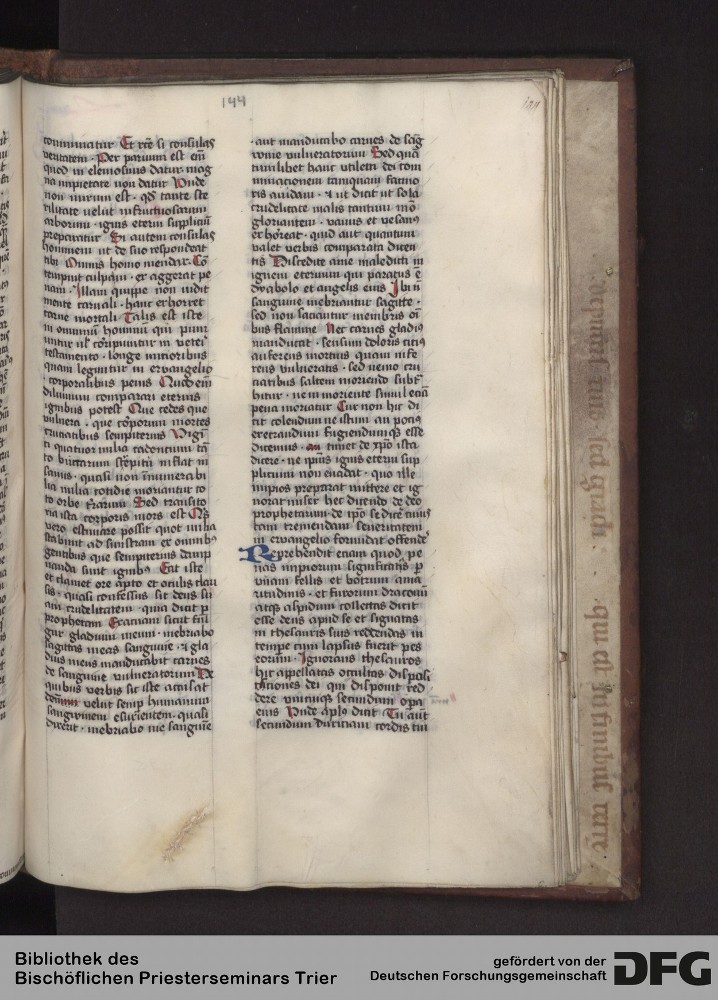 144
comminatur Et rōe si consulas
veritatem. Per parum est eni
quod in elemosinis datur. mag
na impietate non datur Unde
non mirum est. qd tante ste
rilitate velut infructuosarum
arborum. ignis eterni supplicium
preparatur Si autem consulas
hominem ut de suo respondeat
tibi Omnis homo mendax. Cō
tempnit culpam. et aggerat pe
nam. Illam quippe non vidit
mente carnali. hanc exhorret
carne mortali Talis est iste
in omnium hominum qui puni
untur ul conpuniuntur in veteri
testamento. longe mitioribus
quam leguntur in ewangelio
corporalibus penis Quod eni
diluvium comparari eternis
ignibus potest Que cedes que
vulnera. que corporum mortes
cruciatibus sempiternis Vigī
ti quatuor milia cadentium tā
to
samus. quasi non inumerabi
lia milia cotidie moriantur to
to orbe terrarum Sed transito
ria ista corporis mors est Quis
vero estimare possit quot milia
stabunt ad sinistram ex omnibus
gentibus que sempiternis damp
nanda sunt ignibus Eat iste
et clamet ore apto et oculis clau
sis. quasi confessus sit deus su
am crudelitatem. quia dicit per
prophetam Exacuam sicut ful
gur gladium meum. inebriabo
sagittas meas sanguine. et gla
dius meus manducabit carnes
de sanguine vulneratorum De
quibus verbis sic iste accusat
deum velut semper humanum
sanguinem esurientem. quasi
dixerit. inebriabo me sanguine
. aut manducabo carnes de sag
wine vulneratorum Sed quā
tumlibet hanc utilem dei com
minacionem tamquam facino
ris avidam. et ut dicit ut sola
crudelitate malis tantum mō
gloriantem. vanus et vesanus
exhoreat. quid aut quantum
valet verbis comparata dicen
tis Discedite a me maledicti in
ignem eternum qui paratus ē
dyabolo et angelis eius Ibi n
sanguine inebriantur sagitte.
sed non saciantur membris oī
bus flamme Nec carnes gladius
manducat. sensum doloris citius
auferens mortuis quam infe
rens vulneratis. sed nemo cru
ciatibus saltem moriendo subt
hitur. ne in moriente simul eciā
pena moriatur Cur non hic di
cit colendum ne istum an pocius
execrandum fugiendumque esse
dicemus. an timet de xpo ista
dicere. ne ipsius ignis eterni sup
plicium non evadat. quo ille
impios preparat mittere et ig
norat miser hec dicendo de deo
prophetarum de ipo se dicē cuius
tam tremendam severitatem
in ewangelio formidat offende
Reprehendit etiam quod pe
nas impiorum significans p
vinam fellis et botrum ama
ritudinis. et furorem draconū
atque aspidum collectas dicit
esse deus apud se et signatas
in thesauris suis reddendas in
tempe cum lapsus fuerit pes
eorum. Ignorans thesauros
hic appellatas occultas disposi
tiones dei qui disponit red
dere unicuique secundum opera
eius Unde aplus dicit Tu aut
secundum duriciam cordis tui
Bibliothek des
Bischöflichen Priesterseminars Trier
gefördert von der
Deutschen Forschungsgemeinschaft
DFG